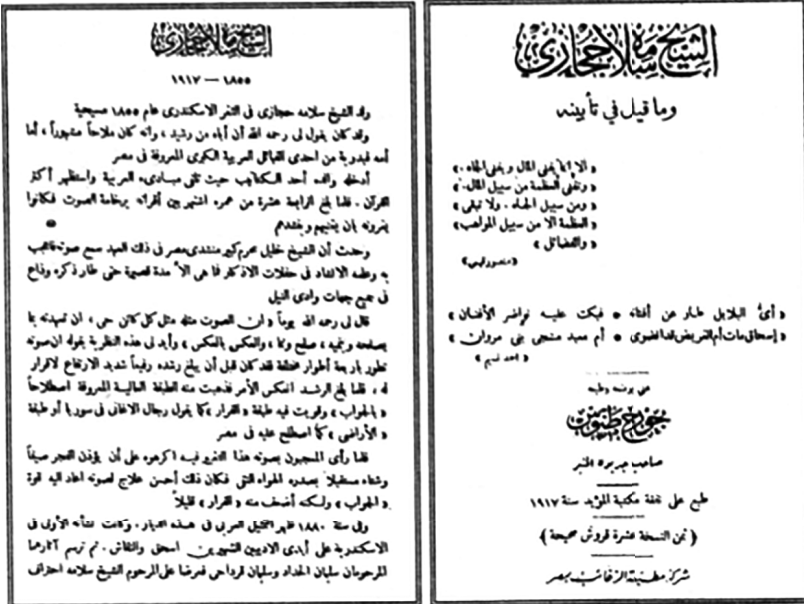 الشيخ سلامة حجازي
وما قيل في تأبينه
« الا انما يفنى المال ويفنى الجاه .»
« وتفنى العظمة من سبيل المال .»
« ومن سبيل الجاه . ولا تبقى »
« العظمة الا من سبيل المواهب »
« والفضائل »
« منصور فهمي »
« أىّ البلابل طار عن أفنانه • فبكت عليه نواضر الأفنان »
« إسحاق مات أم الغريض • أم معبد مشجى بنى مروان »
« احمد نسيم »
عنى بوضعه وطبعه
جورج طنوس
صاحب جريدة المنبر
طبع على نفقة مكتبة المؤيد سنة ١٩١٧
( ثمن النسخة عشرة قروش صحيحة )
شركة مطبعة الرغائب بمصر
الشيخ سلامة حجازي
١٨٥٥ — ١٩١٧
ولد الشيخ سلامه حجازى فى الثغر الاسكندرى عام ١٨٥٥ مسيحية
ولقد كان يقول لى رحمه الله أن أباه من رشيد ، وانه كان ملاحاً مشهوراً ، أما
أمه فبدوية من احدى القبائل العربية الكبرى المعروفة فى مصر
أدخله والده أحد الكتاتيب حيث تلقى مبادىء العربية واستظهر أكثر
القرآن . فلما بلغ الرابعة عشرة من عمره اشتهر بين أقرانه برخامة الصوت فكانوا
يغرونه بان يغنيهم وينشدهم
وحدث أن الشيخ خليل محرم كبير منشدى مصر فى ذلك العهد سمع صوته فاعجب
به وعلمه الانشاد فى حفلات الاذكار فما هى الاّ مدة قصيرة حتى طار ذكره وذاع
فى جميع جهات وادى النيل
قال لى رحمه الله يوماً « ان الصوت مثله مثل كل كائن حى ، ان تعهدته بما
يصلحه وينميه ، صلح ونما ، والعكس بالعكس » وأيد لى هذه النظرية بقوله ان صوته
تطور باربعة أطوار مختلفة فقد كان قبل أن يبلغ رشده رفيعاً شديد الارتفاع لاقرار
له ، فلما بلغ الرشد انعكس الأمر فذهبت منه الطبقة العالية المعروفة اصطلاحاً
« بالجواب » وقويت فيه طبقة « القرار » كما يقول رجال الاغانى فى سوريا أو طبقة
« الأراضى » كما اصطلح عليه فى مصر
فلما رأى المعجبون بصوته هذا التغيير فيه اكرهوه على أن يؤذن الفجر صيفاً
وشتاء مستقبلاً بصدره الهواء النقى فكان ذلك أحسن علاج لصوته اعاد اليه قوة
« الجواب » ولكنه أضعف منه « القرار » قليلاً
وفى سنة ١٨٨٠ ظهر التمثيل العربى فى هذه الديار . وكانت نشأته الأولى فى
الاسكندرية على أيدى الاديبين الشهيرين اسحق والنقاش . ثم ترسم آثارهما
المرحومان سليمان الحداد وسليمان قرداحى فعرضا على المرحوم الشيخ سلامه احتراف